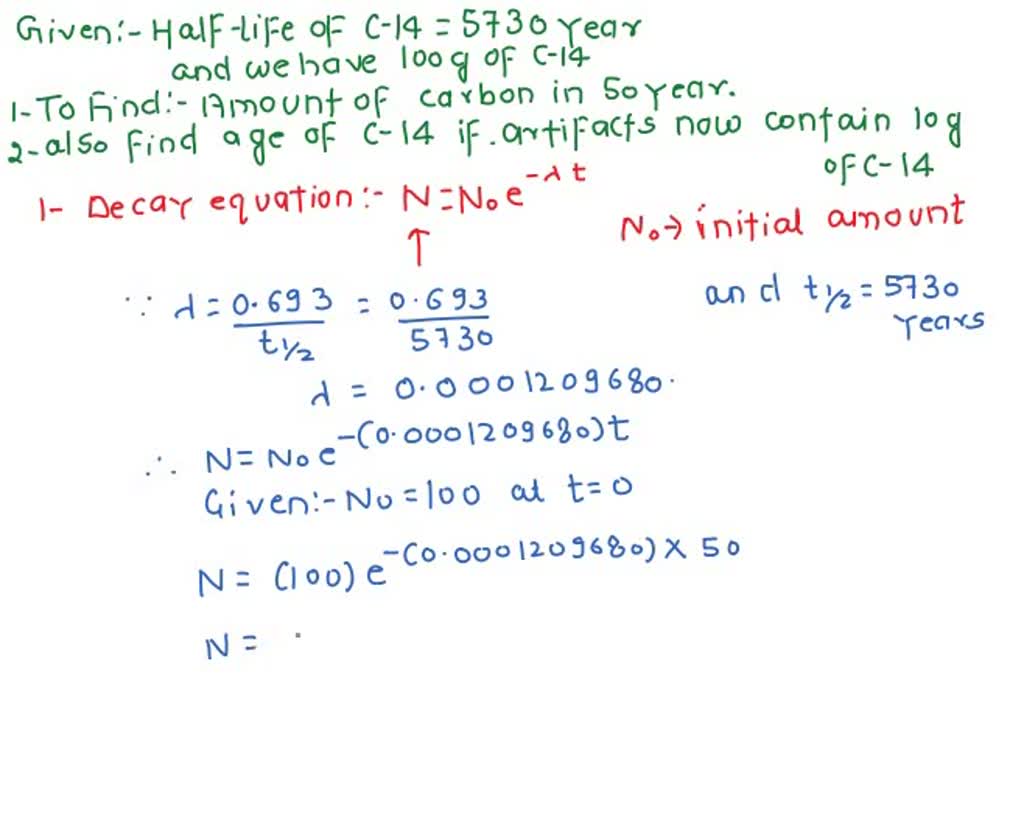 Given:- Half-life of C-14 = 5730 Year
and we have 100g of C-14
1-To Find:- Amount of carbon in 50 year.
2-also find age of C-14 if. artifacts now contain 10g
of C-14
1- Decay equation:- N=N₀e^-λt
N₀→ initial amount
↑
∵ λ = 0.693/t½ = 0.693/5730
and t½ = 5730
Years
λ = 0.0001209680.
∴ N= N₀e^-(0.0001209680)t
Given:- N₀ = 100 at t=0
N= (100) e^-(0.0001209680) × 50
N =